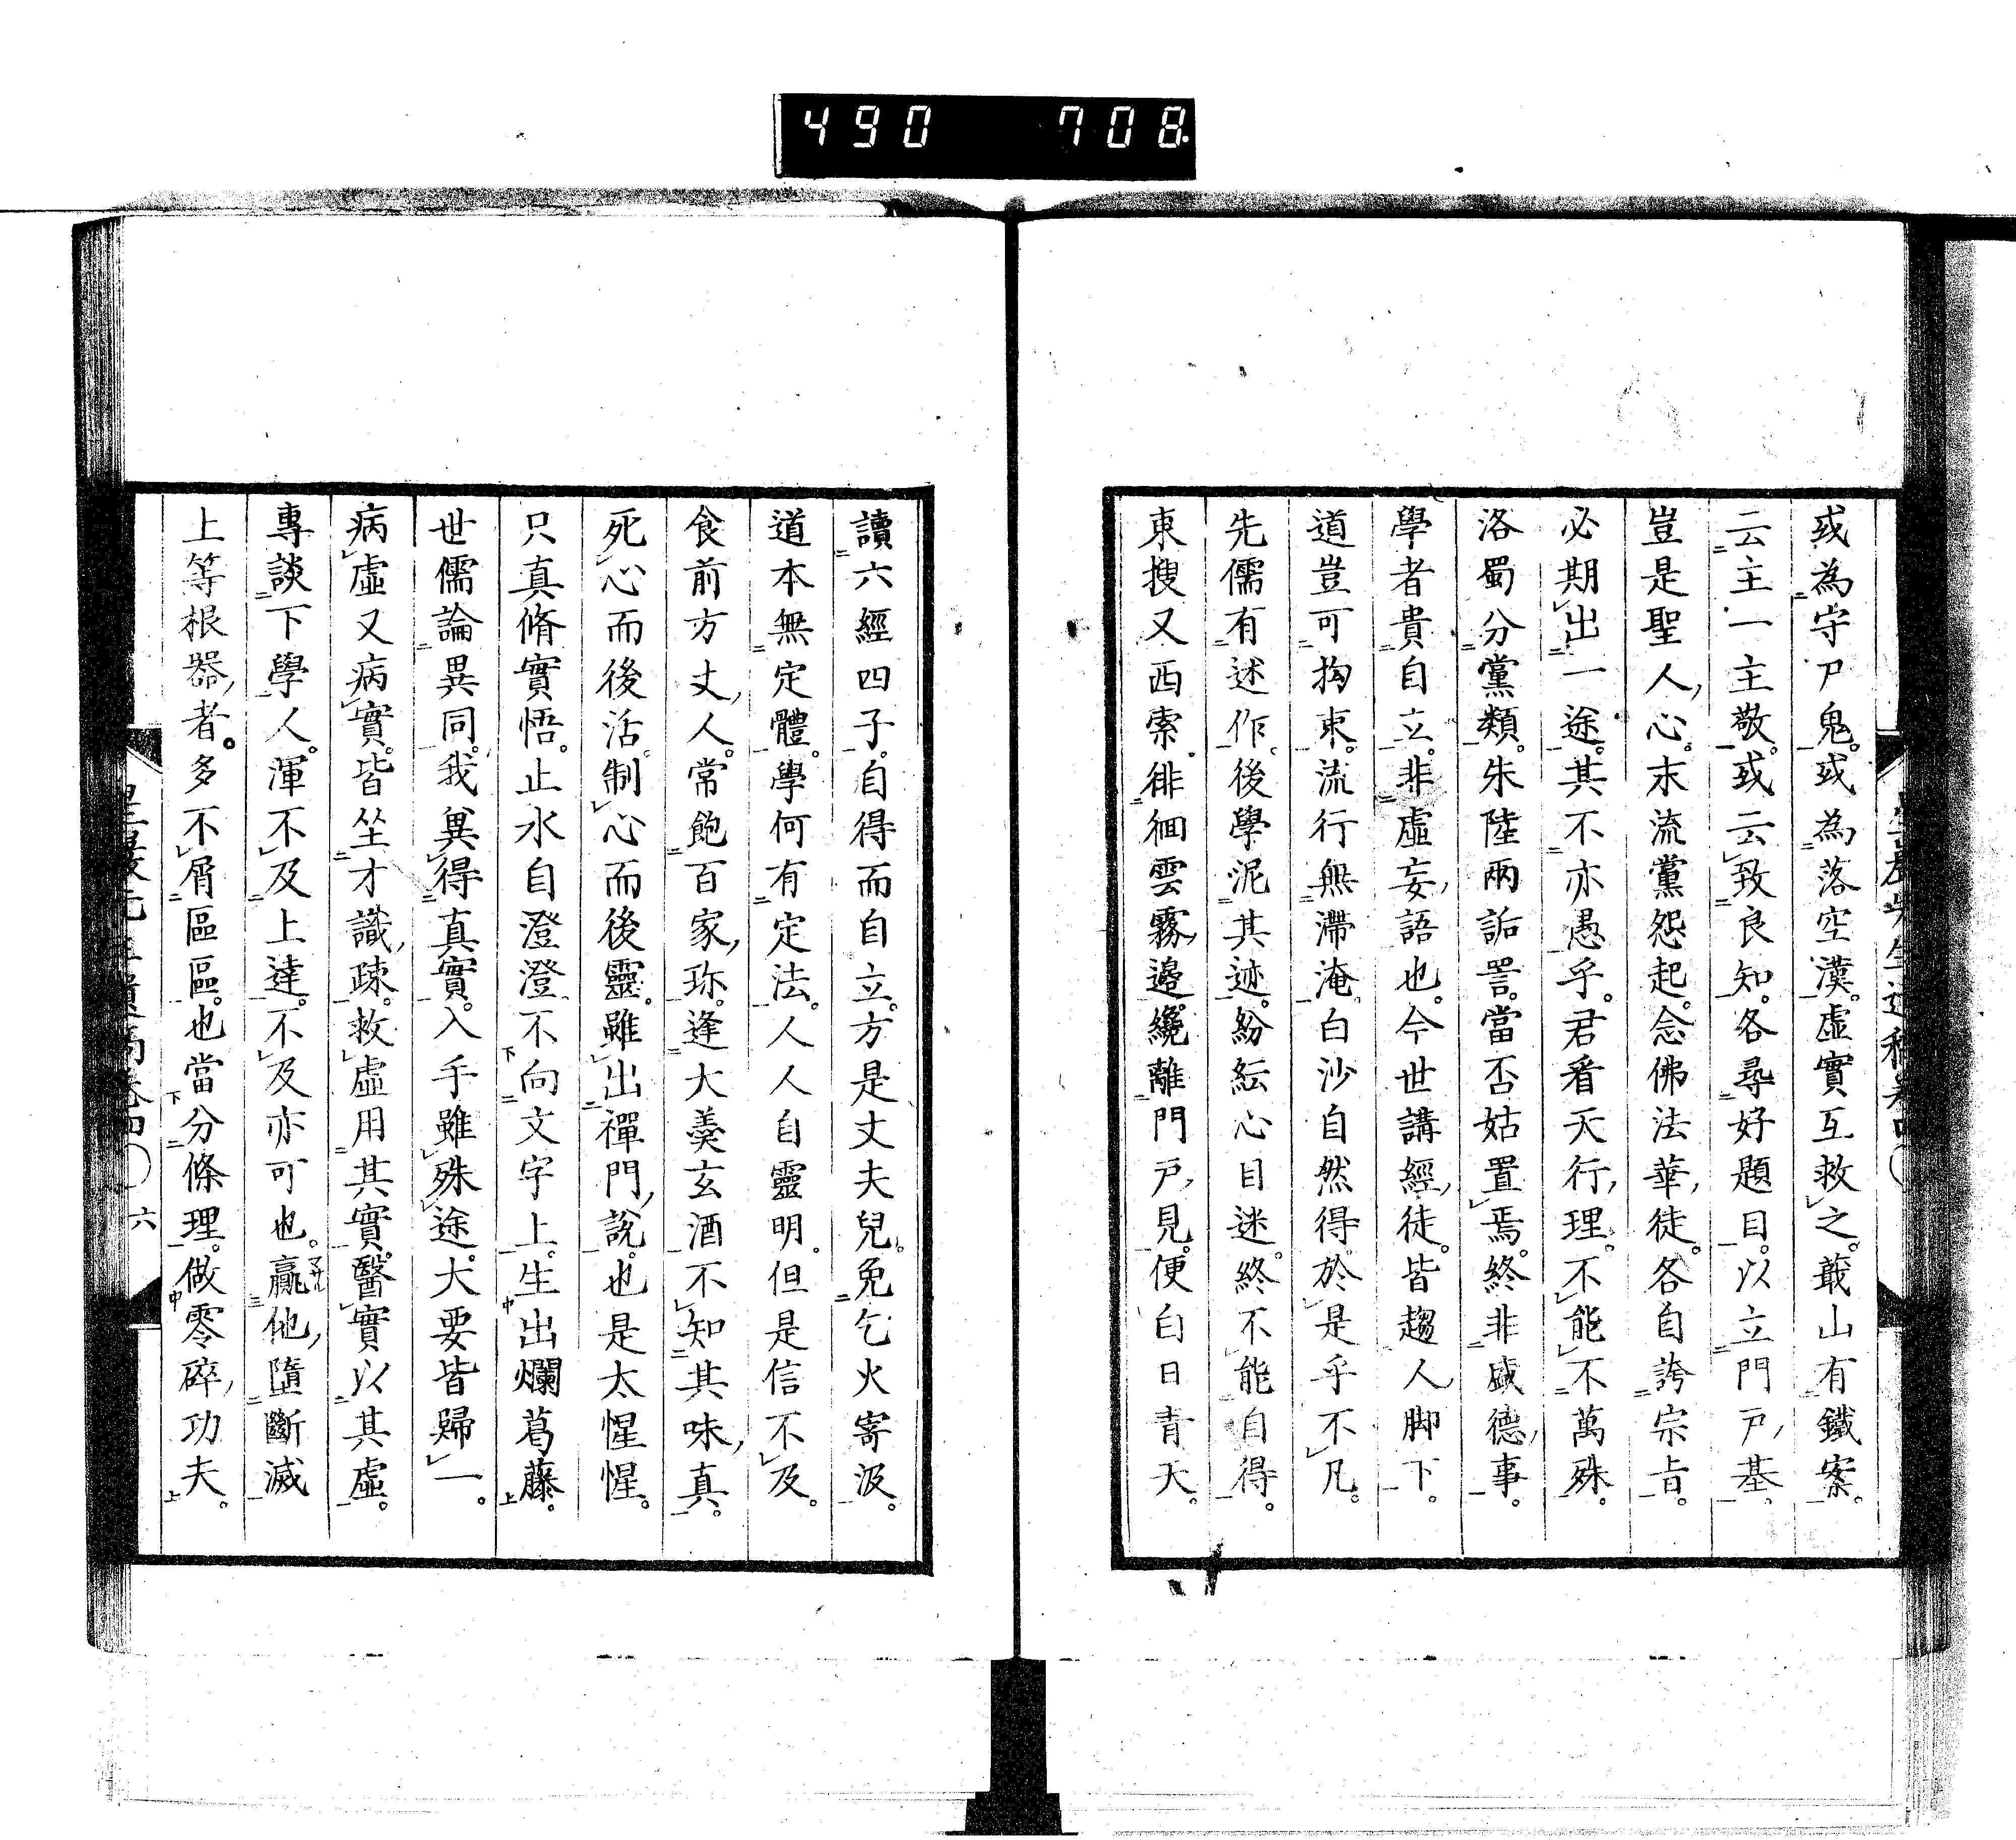 490 708
或為守尸鬼。或為落空漢。虛實互救之。蕺山有鐵案。
云主一主敬。或云致良知。各尋好題目。以立門戸基。
豈是聖人心。末流黨怨起。念佛法華徒。各自誇宗旨。
必期出一途。其不亦愚乎。君看天行理。不能不萬殊。
洛蜀分黨類。朱陸兩詬詈。當否姑置焉。終非盛德事。
學者貴自立。非虛妄語也。今世講經徒。皆趨人脚下。
道豈可拘束。流行無滯淹。白沙自然得。於是乎不凡。
先儒有述作。後學泥其迹。紛紜心目迷。終不能自得。
東搜又西索。徘徊雲霧邊。纔離門戸見。便白日青天。
讀六經四子。自得而自立。方是丈夫兒。免乞火寄汲。
道本無定體。學何有定法。人人自靈明。但是信不及。
食前方丈人。常飽百家珎。逢大羹玄酒。不知其味真。
死心而後活。制心而後靈。雖出禪門說。也是太惺惺。
只真脩實悟。止水自澄澄。不向文字上。生出爛葛藤。
世儒論異同。我異得真實。入手雖殊途。大要皆歸一。
病虛又病實。皆坐才識疎。救虛用其實。醫實以其虛。
專談下學人。渾不及上達。不及亦可也。贏マサル他墮斷滅
上等根器者。多不屑區區。也當分條理。做零碎功夫。
六